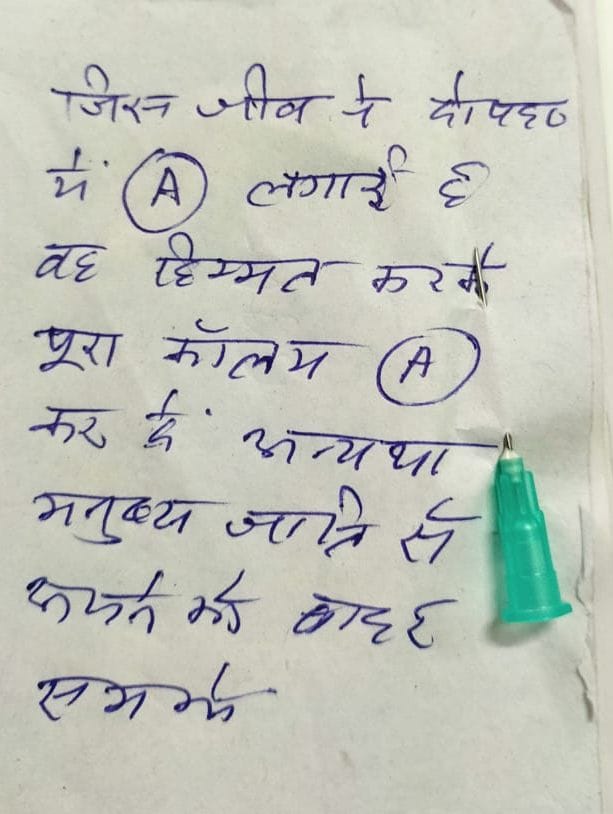 जिस जीव ने दोपहर
में A लगाई है
वह हिम्मत करके
पूरा कॉलम A
कर दें अन्यथा
मनुष्य जाति से
अपने को बाहर
समझे